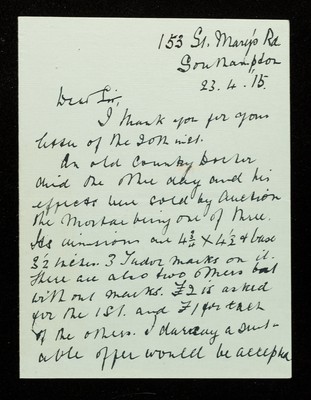 153 St. Mary's Rd
Southampton
23.4.15.
Dear Sir,
I thank you for your
letter of the 20th inst.
An old Country Doctor
died the other day and his
effects were sold by Auction
the Mortar being one of three.
Its dimensions are 4 3/4 x 4 1/2 & base
3 1/2 inches. 3 Tudor marks on it.
There are also two others but
without marks. £2 is asked
for the 1st. and £1 for each
of the others. I daresay a suit-
able offer would be accepted